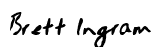 Brett Ingram